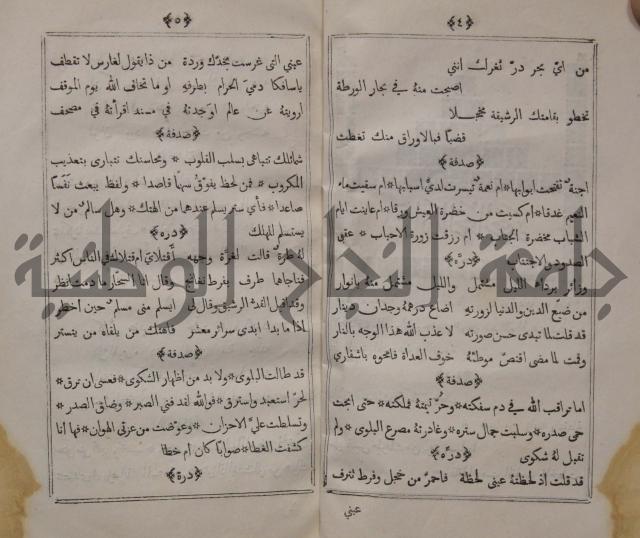 ﴿٤﴾
من ايّ بحر درّ ثغرك انني
اصبحت منهُ في بحار الورطة
تخطو بقامتك الرشيقة مخجلا
قضبًا فبالاوراق منك تغطت
﴿صدفة﴾
اجنة تفتحت ابوابها * ام نعمة تيسرت لديَّ اسبابها * ام سقيت ماء
النعيم غدقا * ام كسيت من خضرة العيش ورقا * ام عاينت ايام
الشباب مخضرة الجناب * ام رزقت زورة الاحباب * عقبى
الصدود والاجتناب ﴿درّة﴾
وزائر برداء الليل مشتمل والليل مشتمل منه بانوار
من ضيّع الدين والدنيا لزورته اضاع درهمهُ وجدان دينار
قد قلت لما تبدى حسن صورته لا عذب الله هذا الوجه بالنار
وقمت لما مضى اقنص موطئهُ خوف العداة فامحوه باشفاري
﴿صدفة﴾
اما تراقب الله في دم سفكته * وحرّ تيمته فملكته * حتى ابحت
حمى صدره * وسلبت جمال ستره * وغادرته مصرع البلوى * ولم
تقبل لهُ شكوى ﴿درّه﴾
قد قلت اذ لحظتهُ عيني لحظة فاحمرّ من خجل وفرط تترف
عيني
﴿٥﴾
عيني التى غرست بخدّك وردة من ذا يقول لغارس لا تقطف
ياسافكا دمي الحرام بطرفهِ او ما تخاف الله يوم الموقف
ارويتهُ عن عالم اوجدتهُ في مسند اقرأتهُ في مصحف
﴿صدفة﴾
شمائلك تتباهى بسلب القلوب * ومحاسنك تتبارى بتعذيب
المكروب * فمن لحظ يفوّق سهمًا قاصدا * ولفظ يبعث نَفَسًا
صاعدا * فأي ستر يسلم عندهما من الهتك * وهل سالم من لا
يستسلم للهلك ﴿درّه﴾
لهُ طرّة قالت لغرّة وجهه أقتلاي ام قتلاك في الناس اكثر
فناجاها طرف بفرط تفاتح وقال انا السحّار ما دمت انظر
وقد اقبل القدّ الرشيق وقال لي ايسلم مني مسلم حين اخطر
اذا ما بدا ابدى سرائر معشر فاهتك من يلقاه من يتستر
﴿صدفة﴾
قد طالت البلوى * ولا بد من اظهار الشكوى * فعسى ان ترق *
لحرّ استعبد واسترق * فوالله لقد فني الصبر * وضاق الصدر *
وتسلطت عليَّ الاحزان * وعوّضت من عزّتي الهوان * فها انا
كشفت الغطا * صوابًا كان ام خطا
﴿درة﴾
جامعة النجاح الوطنية